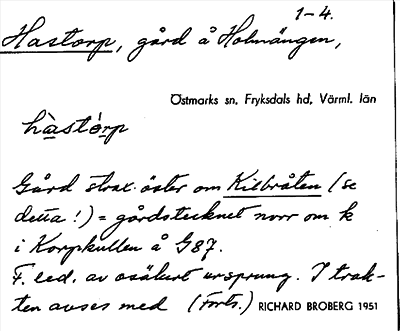 1-4.
Hastorp, gård å Holmängen,
Östmarks sn, Fryksdals hd, Värml. län
hàstórp
Gård strax öster om Kilbråten (se
detta!) = gårdstecknet norr om k
i Korpkullen å G87.
F. led. av osäkert ursprung. I trak-
ten avses med (Forts.) RICHARD BROBERG 1951